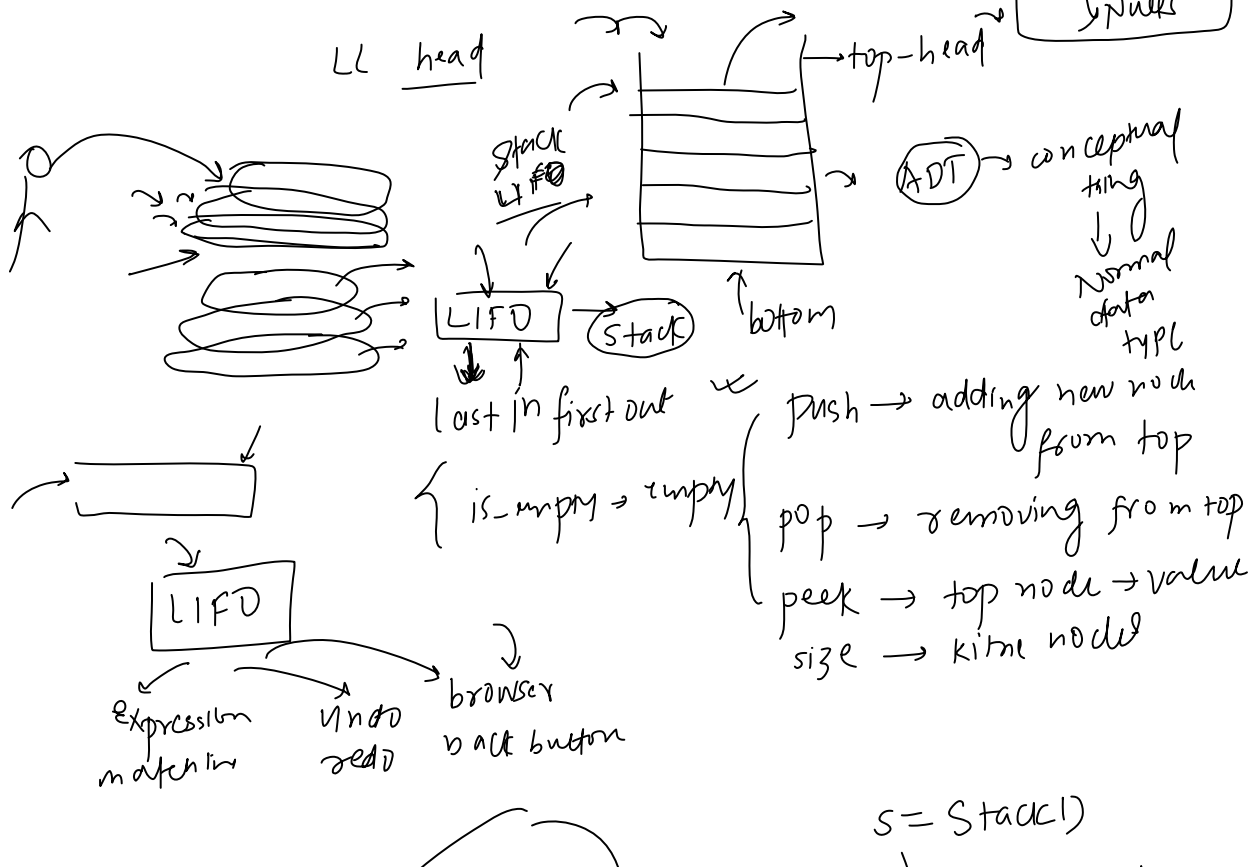 LL head
top-head
Stack
LIFO
ADT
conceptual
thing
Normal
data
type
LIFO
Stack
bottom
last in first out
push → adding new node
from top
is_empty → empty
pop → removing from top
LIFO
peek → top node → value
size → kitne nodes
expression
matching
undo
redo
browser
back button
s = Stack()